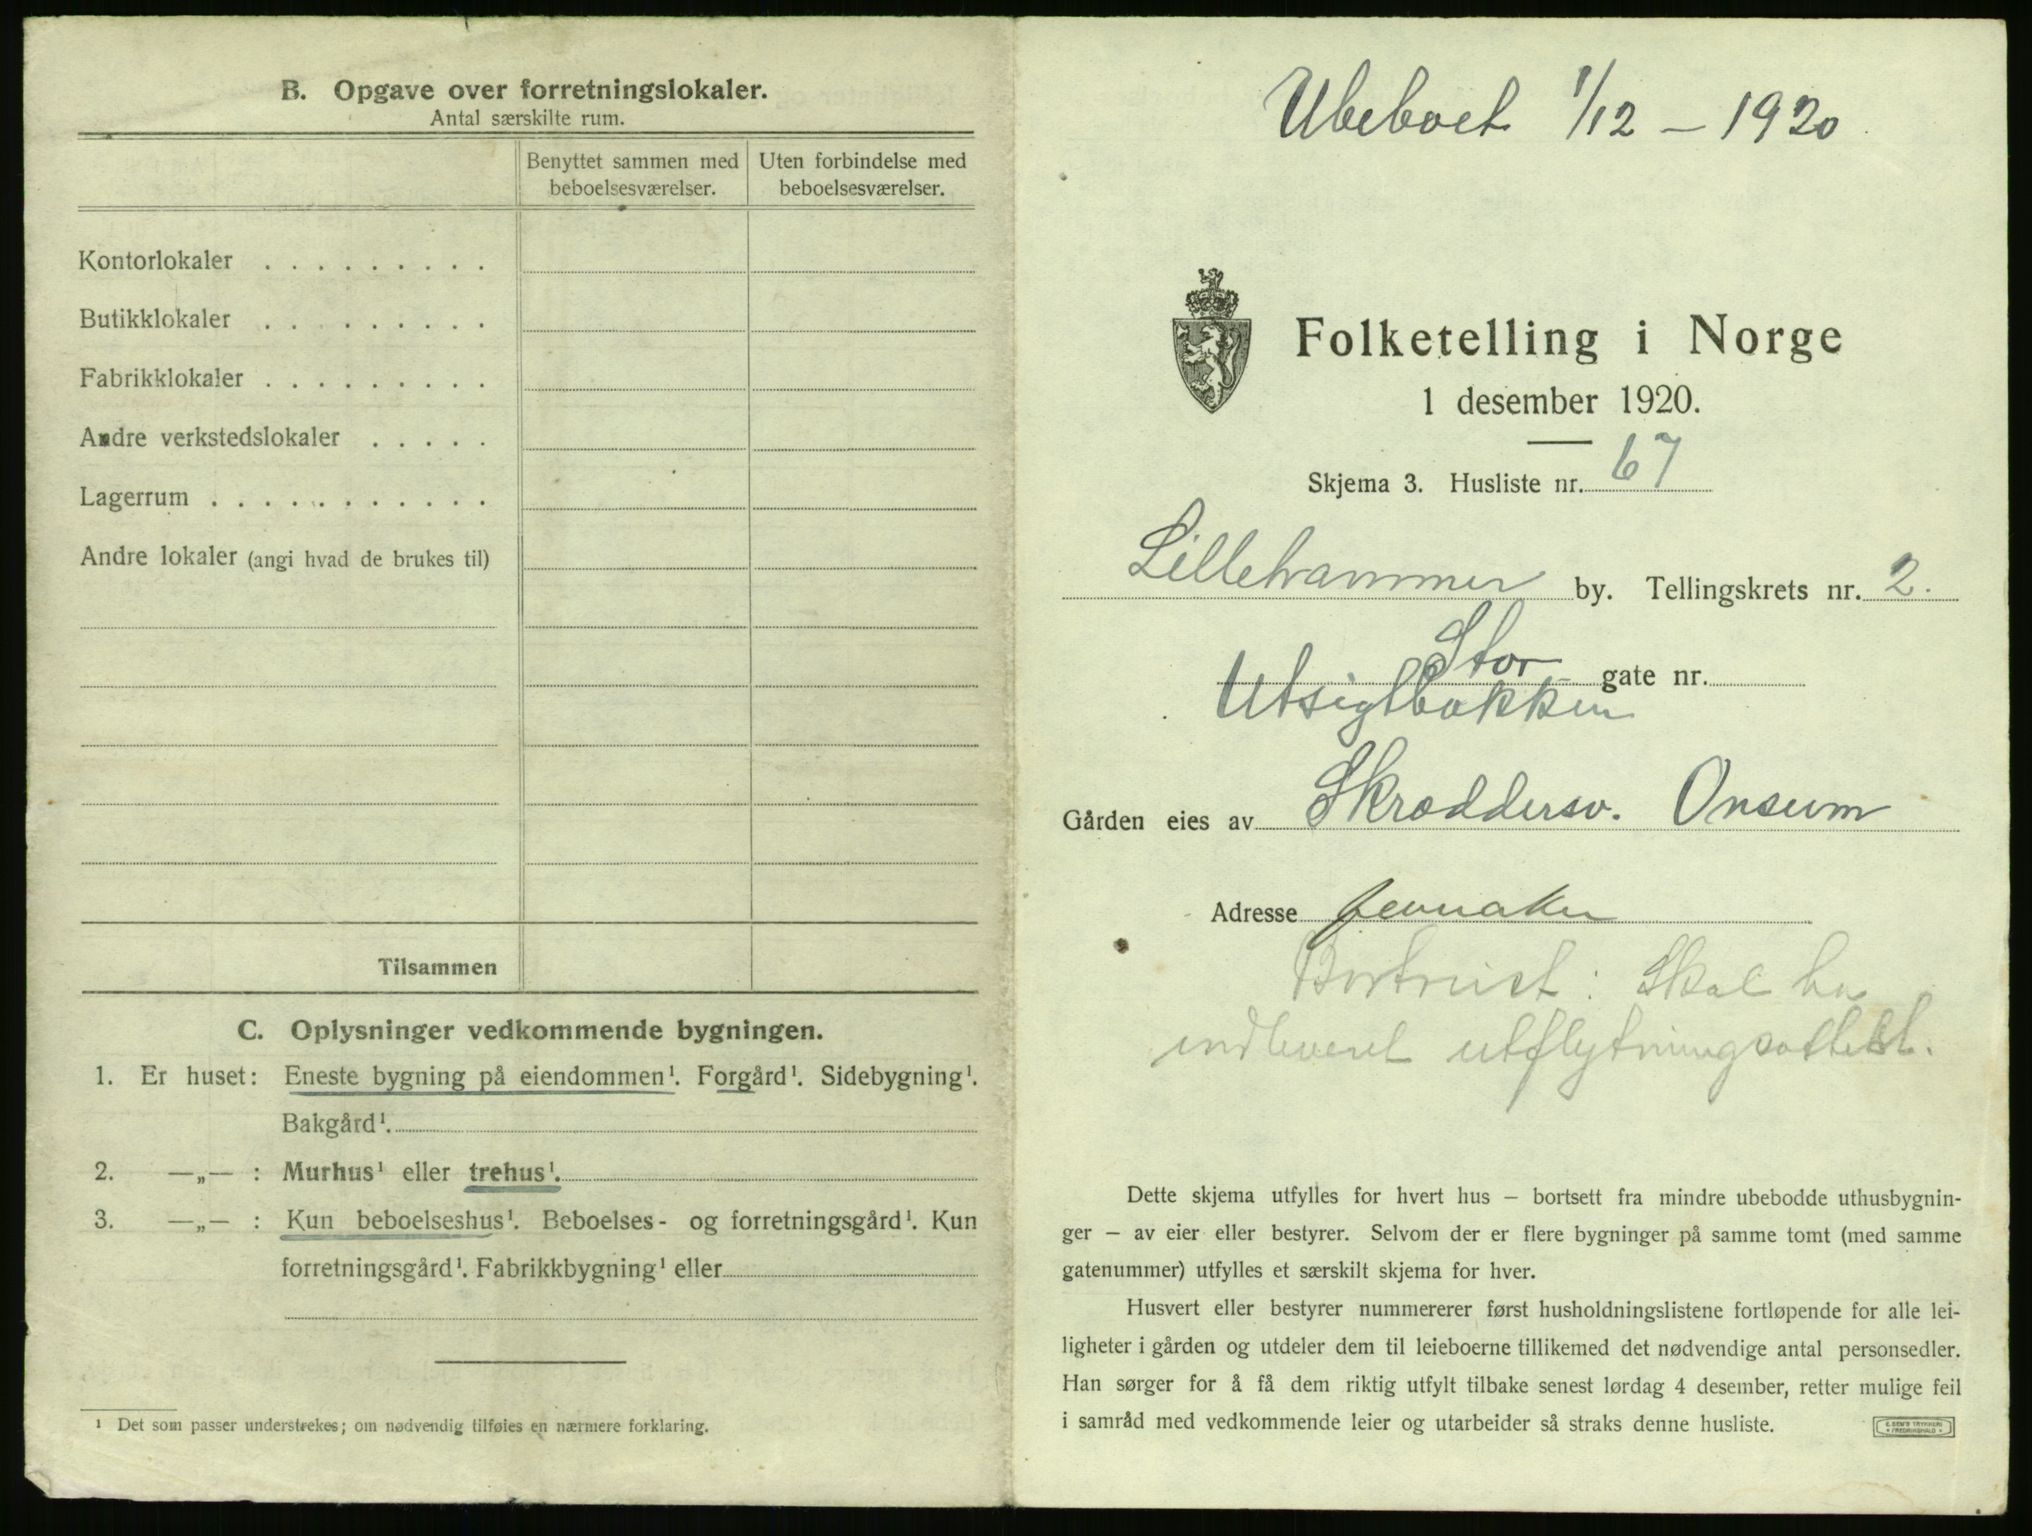 B. Opgave over forretningslokaler.
Antal særskilte rum.
Benyttet sammen med beboelsesværelser.
Uten forbindelse med beboelsesværelser.
Kontorlokaler . . . . . . . . .
Butikklokaler . . . . . . . . .
Fabrikklokaler . . . . . . . . .
Andre verkstedslokaler . . . . .
Lagerrum . . . . . . . . . . .
Andre lokaler (angi hvad de brukes til)
Tilsammen
C. Oplysninger vedkommende bygningen.
1. Er huset: Eneste bygning på eiendommen¹. Forgård¹. Sidebygning¹.
Bakgård¹.
2. —„— : Murhus¹ eller trehus¹.
3. —„— : Kun beboelseshus¹. Beboelses- og forretningsgård¹. Kun
forretningsgård¹. Fabrikkbygning¹ eller
¹ Det som passer understrekes; om nødvendig tilføies en nærmere forklaring.
Ubeboet 1/12 – 1920
Folketelling i Norge
1 desember 1920.
Skjema 3. Husliste nr. 67
Lillehammer by. Tellingskrets nr. 2.
Stor gate nr.
Utsigtbakken
Gården eies av Skræddersv. Onsum
Adresse Jevnaker
Bortreist: Skal ha
indleveret utflytningsattest.
Dette skjema utfylles for hvert hus – bortsett fra mindre ubebodde uthusbygnin-
ger – av eier eller bestyrer. Selvom der er flere bygninger på samme tomt (med samme
gatenummer) utfylles et særskilt skjema for hver.
Husvert eller bestyrer nummererer først husholdningslistene fortløpende for alle lei-
ligheter i gården og utdeler dem til leieboerne tillikemed det nødvendige antal personsedler.
Han sørger for å få dem riktig utfylt tilbake senest lørdag 4 desember, retter mulige feil
i samråd med vedkommende leier og utarbeider så straks denne husliste.
E. SEM'S TRYKKERI
FREDRIKSHALD